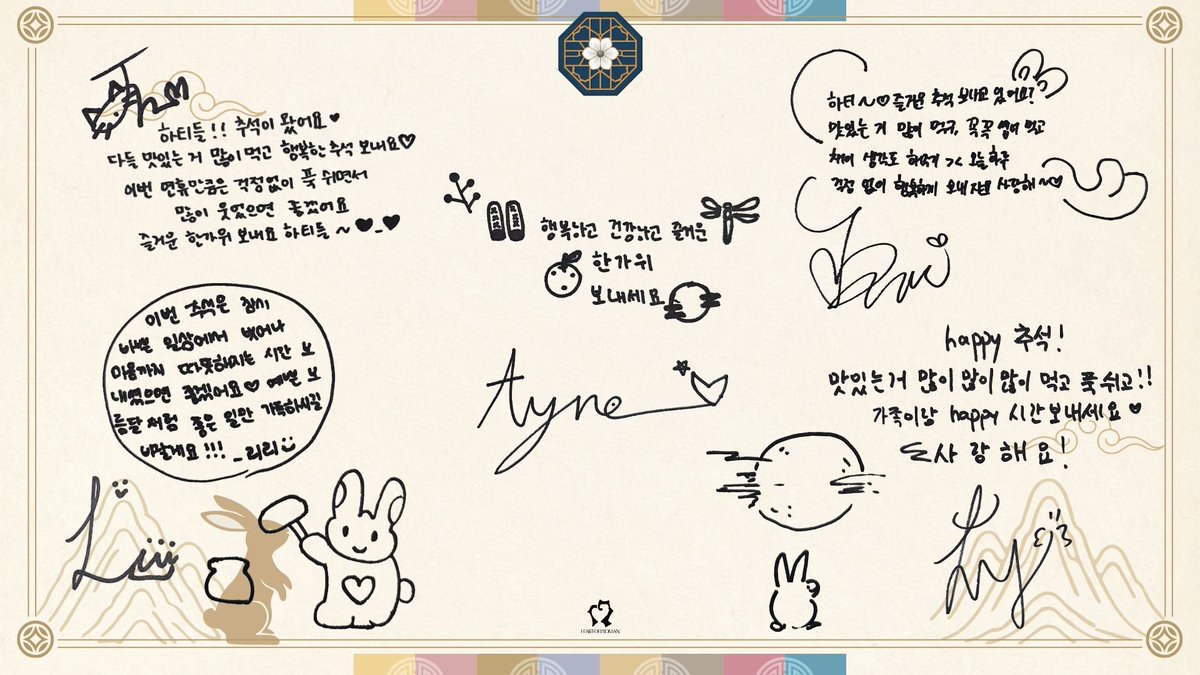 하티들!! 추석이 왔어요♥
다들 맛있는 거 많이 먹고 행복한 추석 보내요♡
이번 연휴만큼은 걱정없이 푹 쉬면서
많이 웃었으면 좋겠어요
즐거운 한가위 보내요 하티들 ~ ♥_♥
행복하고 건강하고 즐거운
한가위
보내세요
Ayne
하티~♡ 즐거운 추석 보내고 있어요?
맛있는 거 많이 먹구, 꼭꼭 씹어 먹고
생각도 하면서 >< 오늘 하루
걱정 없이 행복하게 보내 사랑해~♡
이번 추석은 잠시
바쁜 일상에서 벗어나
마음까지 따뜻해지는 시간 보
내셨으면 좋겠어요♡ 예쁜 보
름달처럼 좋은 일만 가득하시길
바랄게요!!! _리리
happy 추석!
맛있는거 많이 많이 많이 먹고 푹 쉬고!!
가족이랑 happy 시간 보내세요♥
사랑해요!
HEARTOFWOMAN